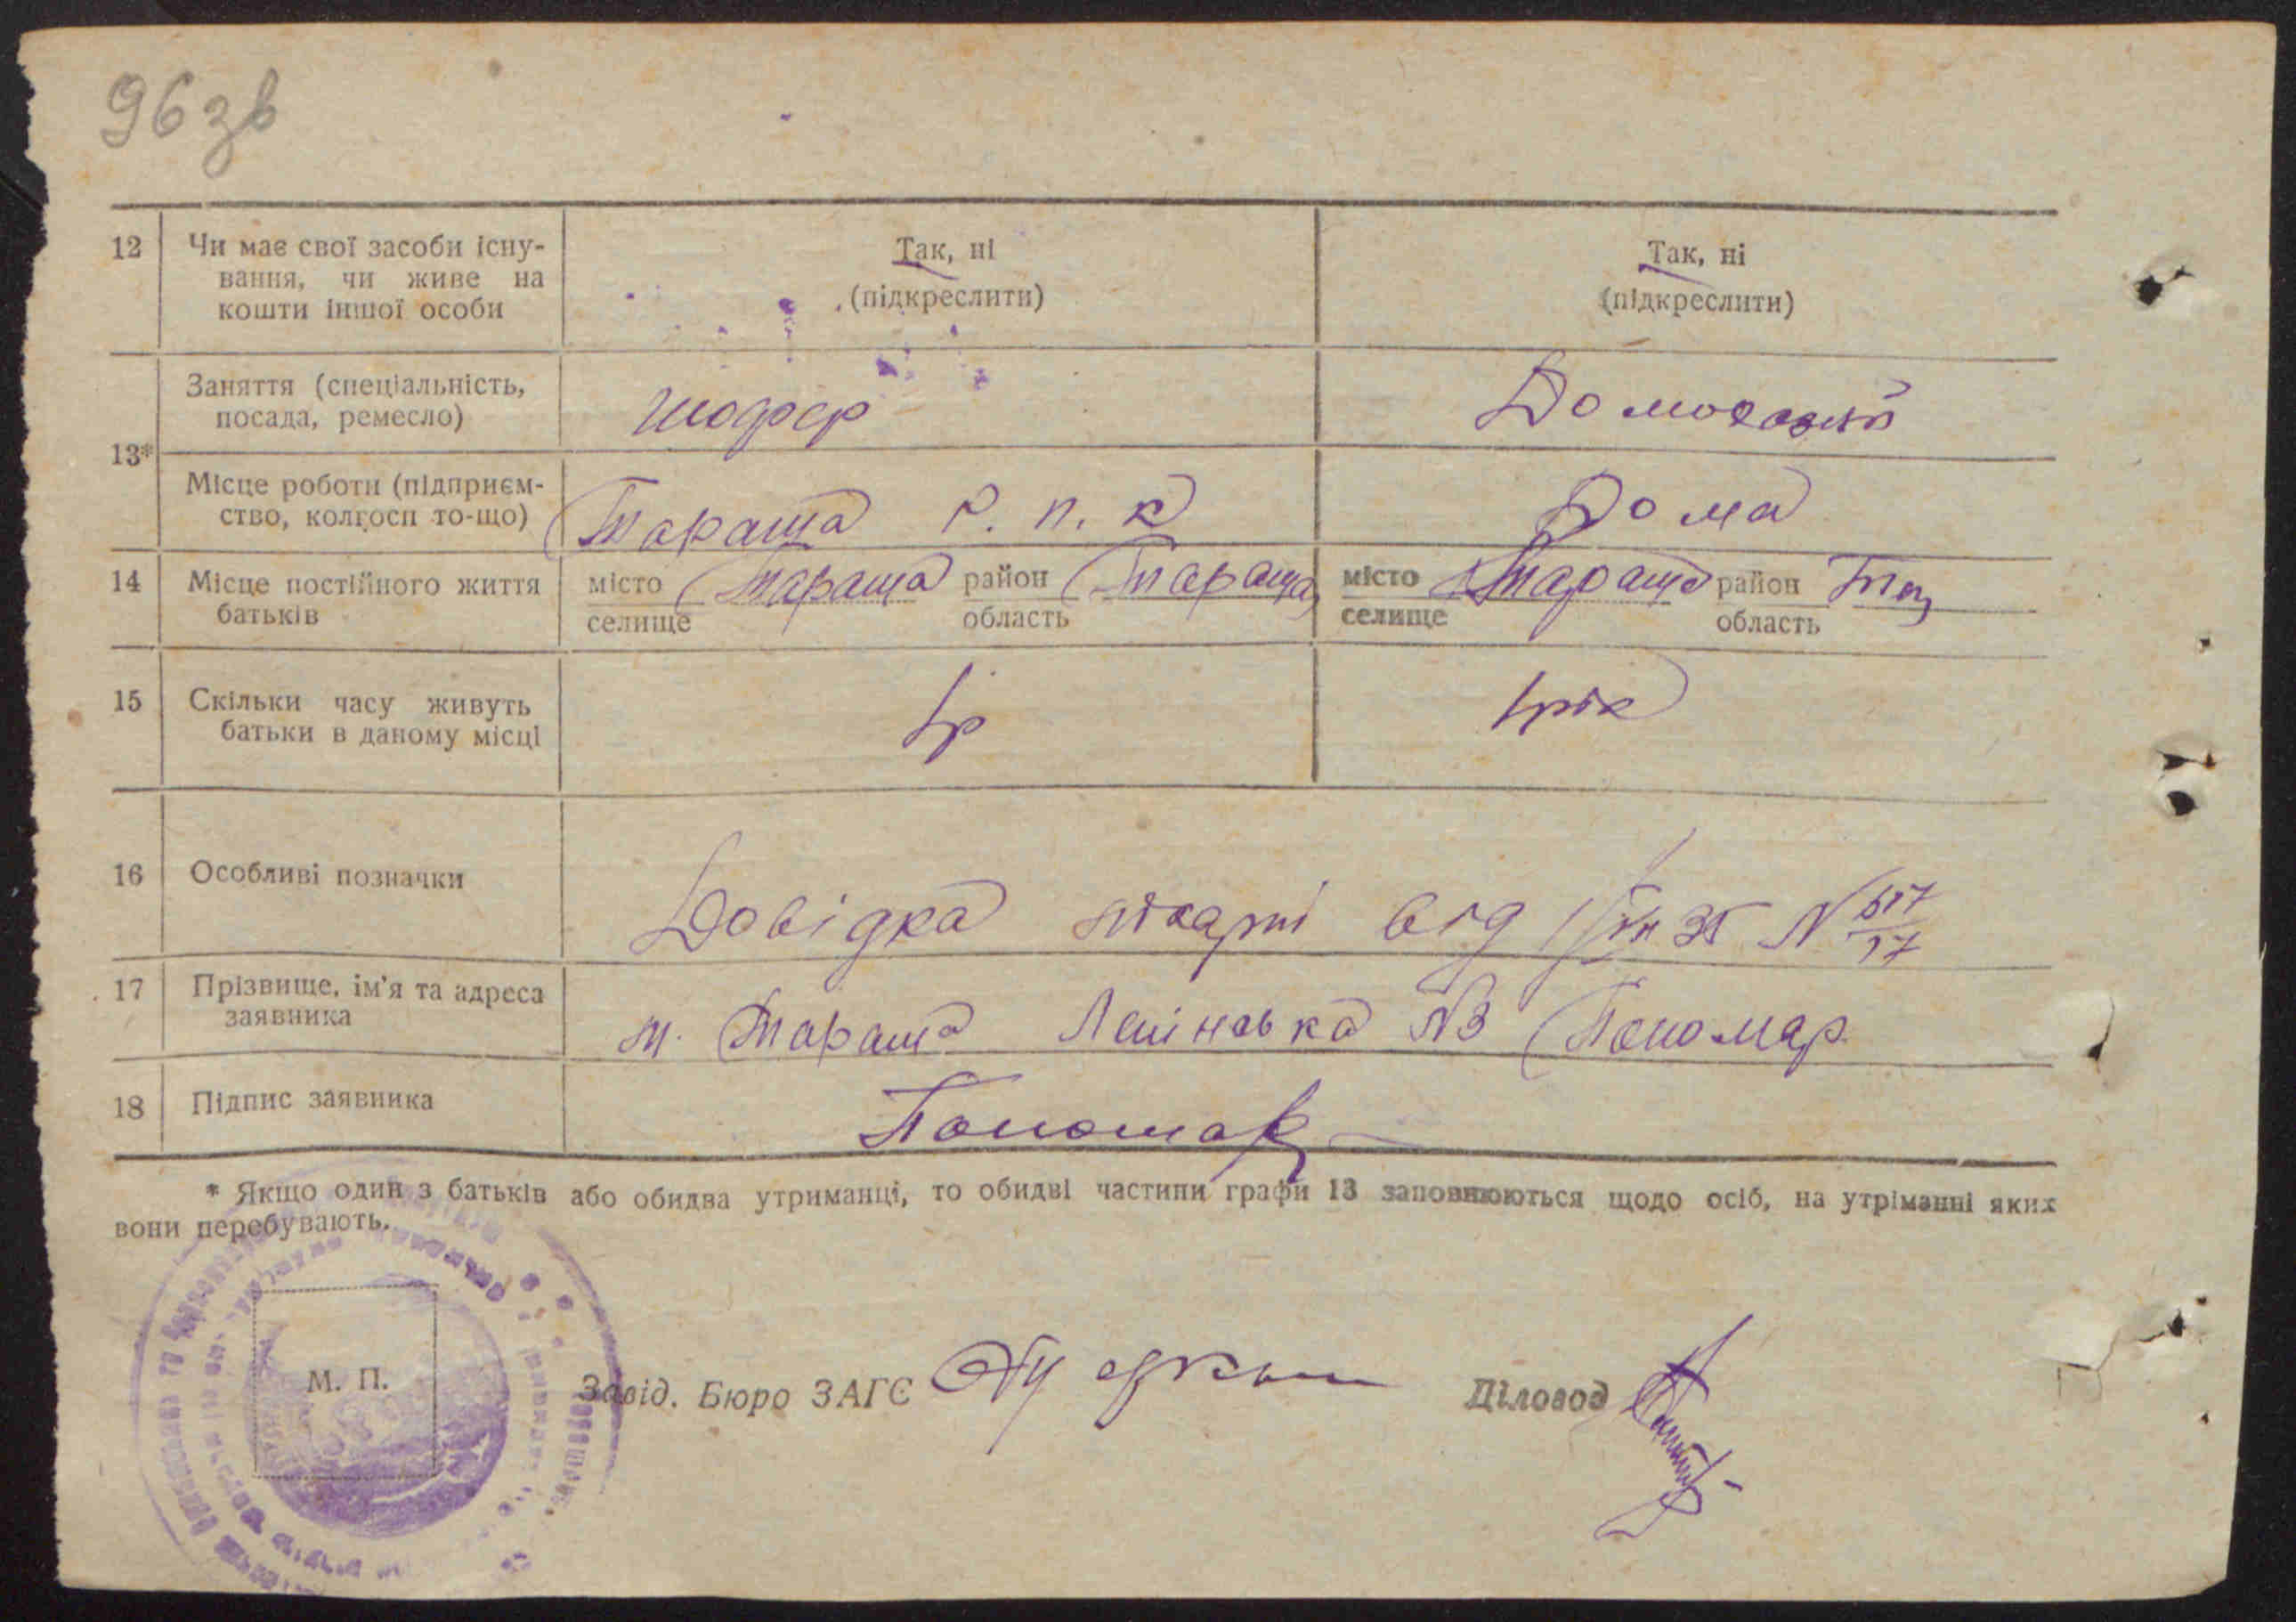 96 зв
12 Чи має свої засоби існу- Так, ні Так, ні
вання, чи живе на (підкреслити) (підкреслити)
кошти іншої особи
13* Заняття (спеціальність, шофер
посада, ремесло)
Місце роботи (підприєм- Тараща р. п. к Дома
ство, колгосп то-що)
14 Місце постійного життя місто Тараща район Тараща місто Тараща район Тащ
батьків селище область селище область
15 Скільки часу живуть 1р 1рік
батьки в даному місці
16 Особливі позначки Довідка лікарні від 35 N 617/17
17 Прізвище, ім'я та адреса м. Тараща Ленінська N3 Пономар
заявника
18 Підпис заявника Пономар
* Якщо один з батьків або обидва утриманці, то обидві частини графи 13 заповнюються щодо осіб, на утріманні яких
вони перебувають.
М. П.
Завід. Бюро ЗАГС Діловод